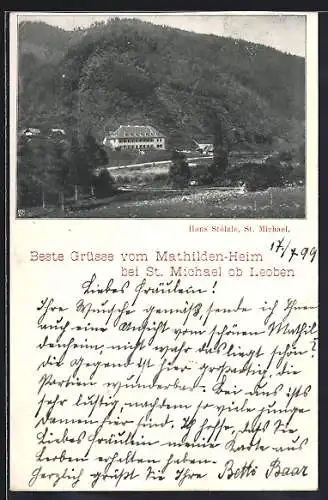 Hans Stelzle, St. Michael.
17/7 99
Beste Grüsse vom Mathilden-Heim
bei St. Michael ob Leoben
Liebes Fräulein!
Ihre Wunsche gemäß, sende ich Ihnen
auch eine Ansicht vom schönen Mathil
denheim, nicht wahr das liegt schön?
die Gegend ist hier großartig, die
Partien wunderbar. Bei uns ists
sehr lustig, nachdem so viele junge
Damen hier sind. Ich hoffe, daß Sie
Liebes Fräulein meine Karte aus
Leoben erhalten haben.
Herzlich grüßt Sie Ihre Betti Baar